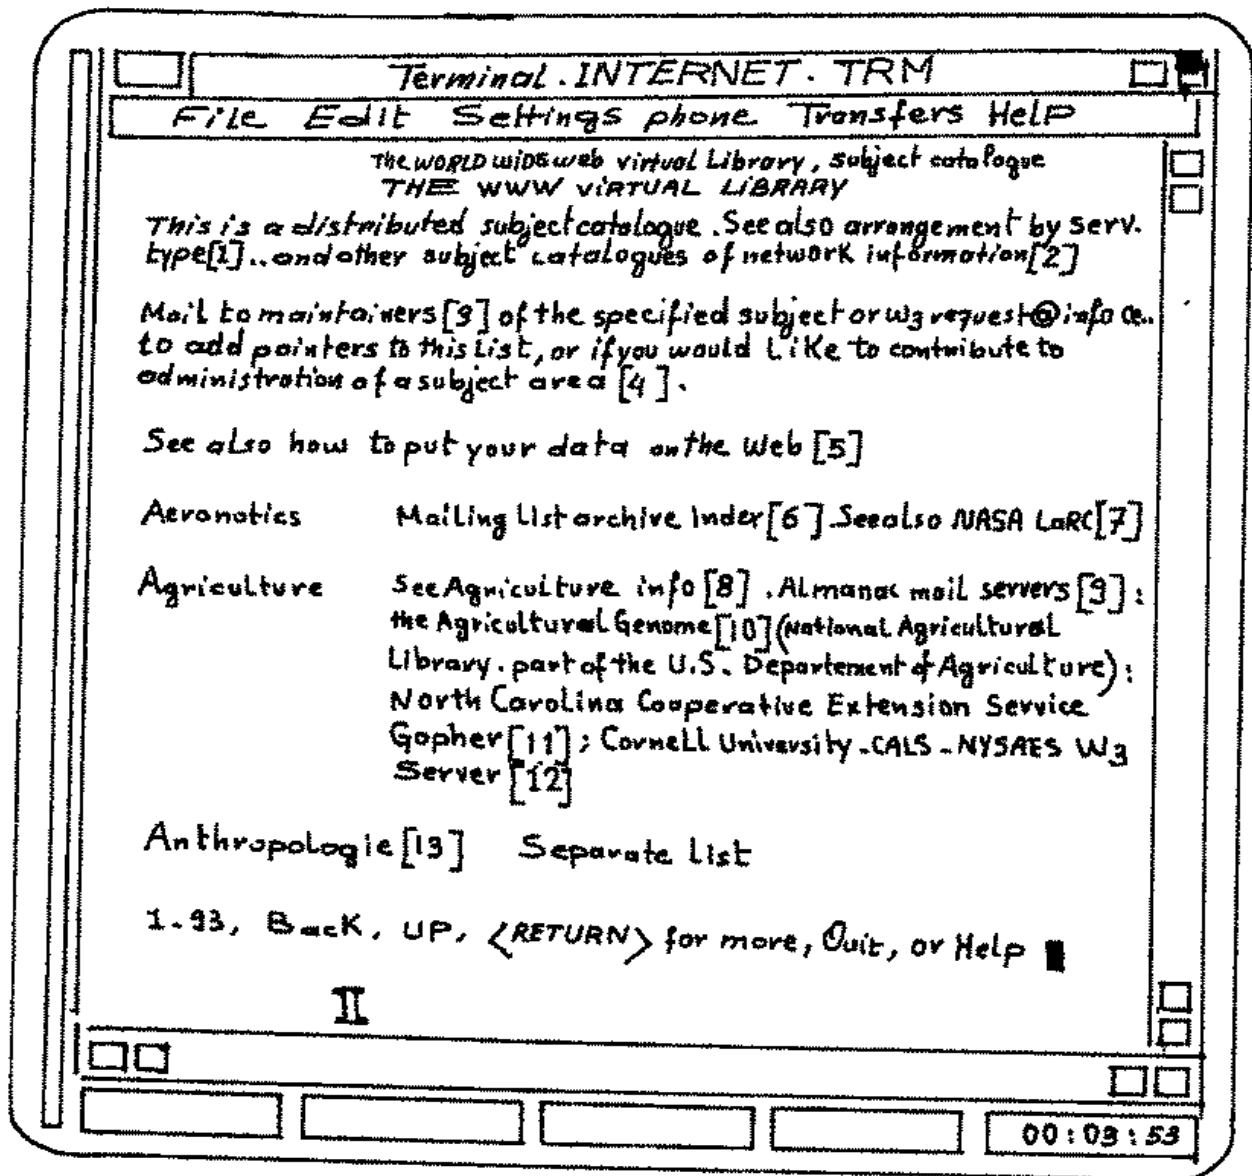 Terminal.INTERNET.TRM
File Edit Settings phone Transfers Help
The WORLD WiDE web virtual Library, subject catalogue
THE WWW ViRTUAL LiBRARY
This is a distributed subject catalogue. See also arrangement by serv.
type[1]..and other subject catalogues of network information[2]
Mail to maintainers[3] of the specified subject or w3 request@info ce..
to add pointers to this List, or if you would Like to contribute to
administration of a subject area [4].
See also how to put your data on the Web [5]
Aeronotics Mailing List archive Index[6]. See also NASA LaRC[7]
Agriculture See Agriculture info [8]. Almanac mail servers [9]:
the Agricultural Genome[10](National Agricultural
Library. part of the U.S. Departement of Agriculture):
North Carolina Cooperative Extension Service
Gopher[11]; Cornell University-CALS-NYSAES W3
Server[12]
Anthropologie[13] Separate List
1-93, Back, UP, <RETURN> for more, Quit, or Help
00:03:53